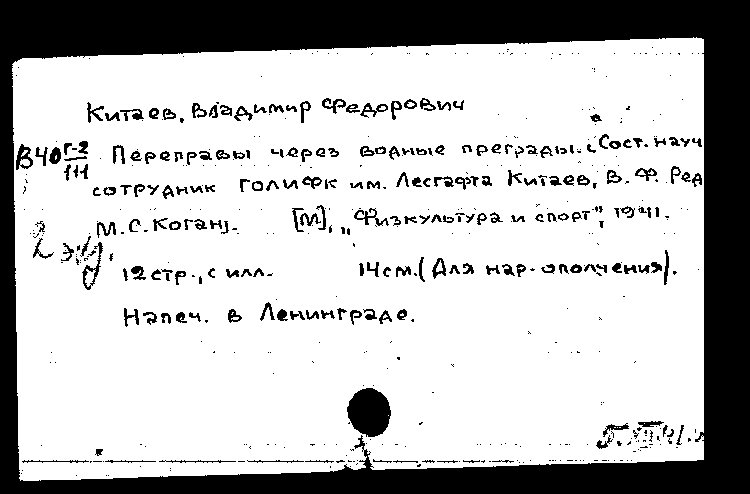 Китаев, Владимир Федорович
В40 Г-2/111 Переправы через водные преграды. [Сост. науч
сотрудник ГОЛИФК им. Лесгафта Китаев, В. Ф. Ред
М. С. Коган]. [М], „Физкультура и спорт", 1941.
2 экз.
12 стр., с илл. 14 см. (Для нар. ополчения).
Напеч. в Ленинграде.